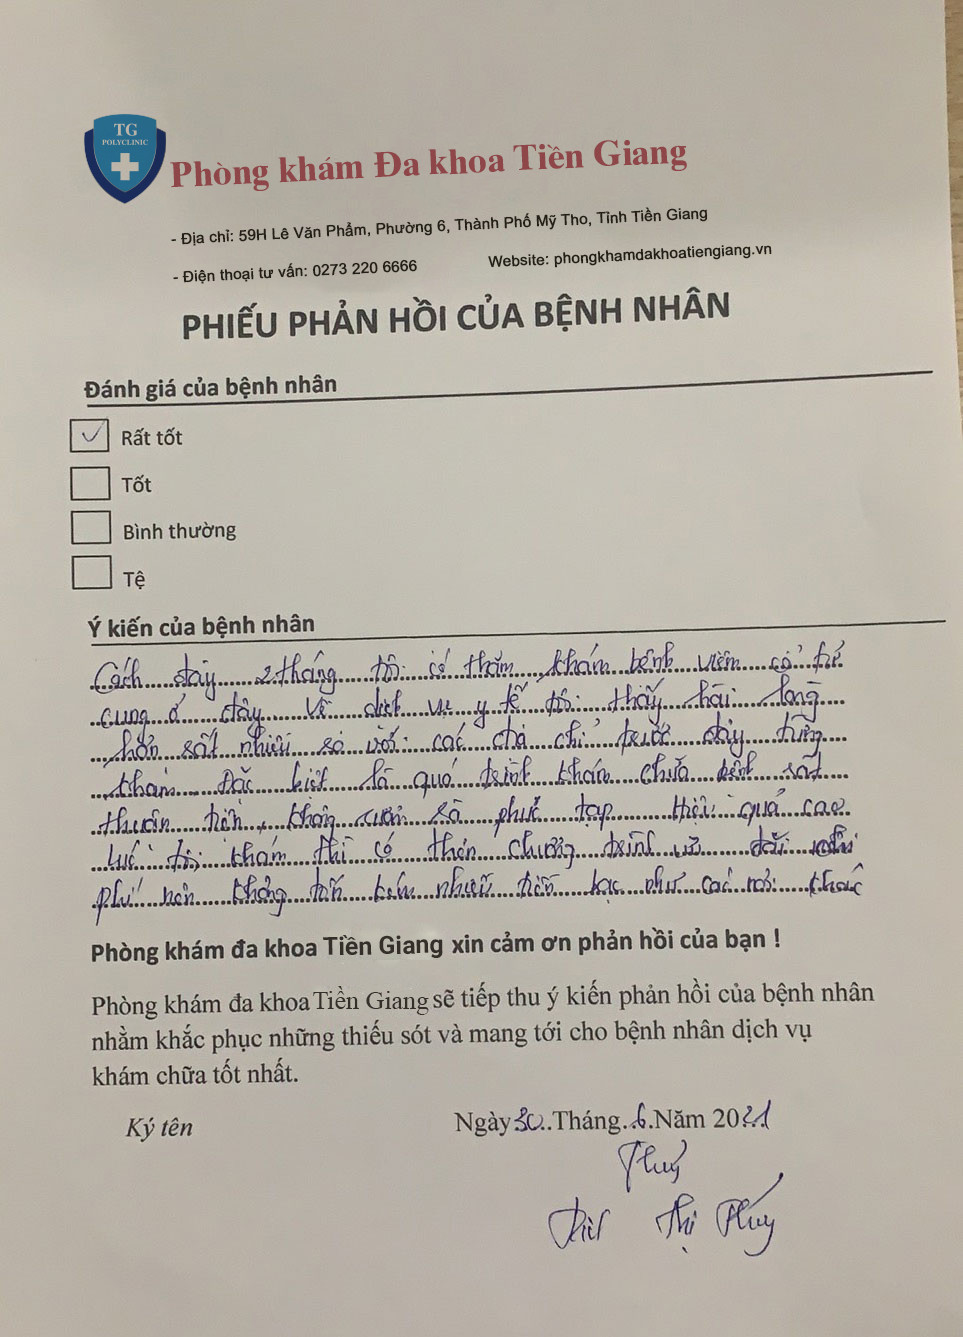 TG
POLYCLINIC
Phòng khám Đa khoa Tiền Giang
- Địa chỉ: 59H Lê Văn Phẩm, Phường 6, Thành Phố Mỹ Tho, Tỉnh Tiền Giang
- Điện thoại tư vấn: 0273 220 6666 Website: phongkhamdakhoatiengiang.vn
PHIẾU PHẢN HỒI CỦA BỆNH NHÂN
Đánh giá của bệnh nhân
Rất tốt
Tốt
Bình thường
Tệ
Ý kiến của bệnh nhân
Cách đây 2 tháng tôi có thăm khám bệnh viêm cổ tử
cung ở đây về dịch vụ y tế tôi thấy hài lòng
hơn rất nhiều so với các chỗ chỉ trước đây từng
khám Đặc biệt là quá trình khám chữa bệnh rất
thuận tiện, không rườm rà phức tạp Hiệu quả cao
Lúc tôi khám thì có chương trình ưu đãi
phí nên không tốn kém nhiều tiền bạc như các nơi khác
Phòng khám đa khoa Tiền Giang xin cảm ơn phản hồi của bạn !
Phòng khám đa khoa Tiền Giang sẽ tiếp thu ý kiến phản hồi của bệnh nhân
nhằm khắc phục những thiếu sót và mang tới cho bệnh nhân dịch vụ
khám chữa tốt nhất.
Ký tên Ngày 30..Tháng..6.Năm 2021
Thuý
Thị Thúy